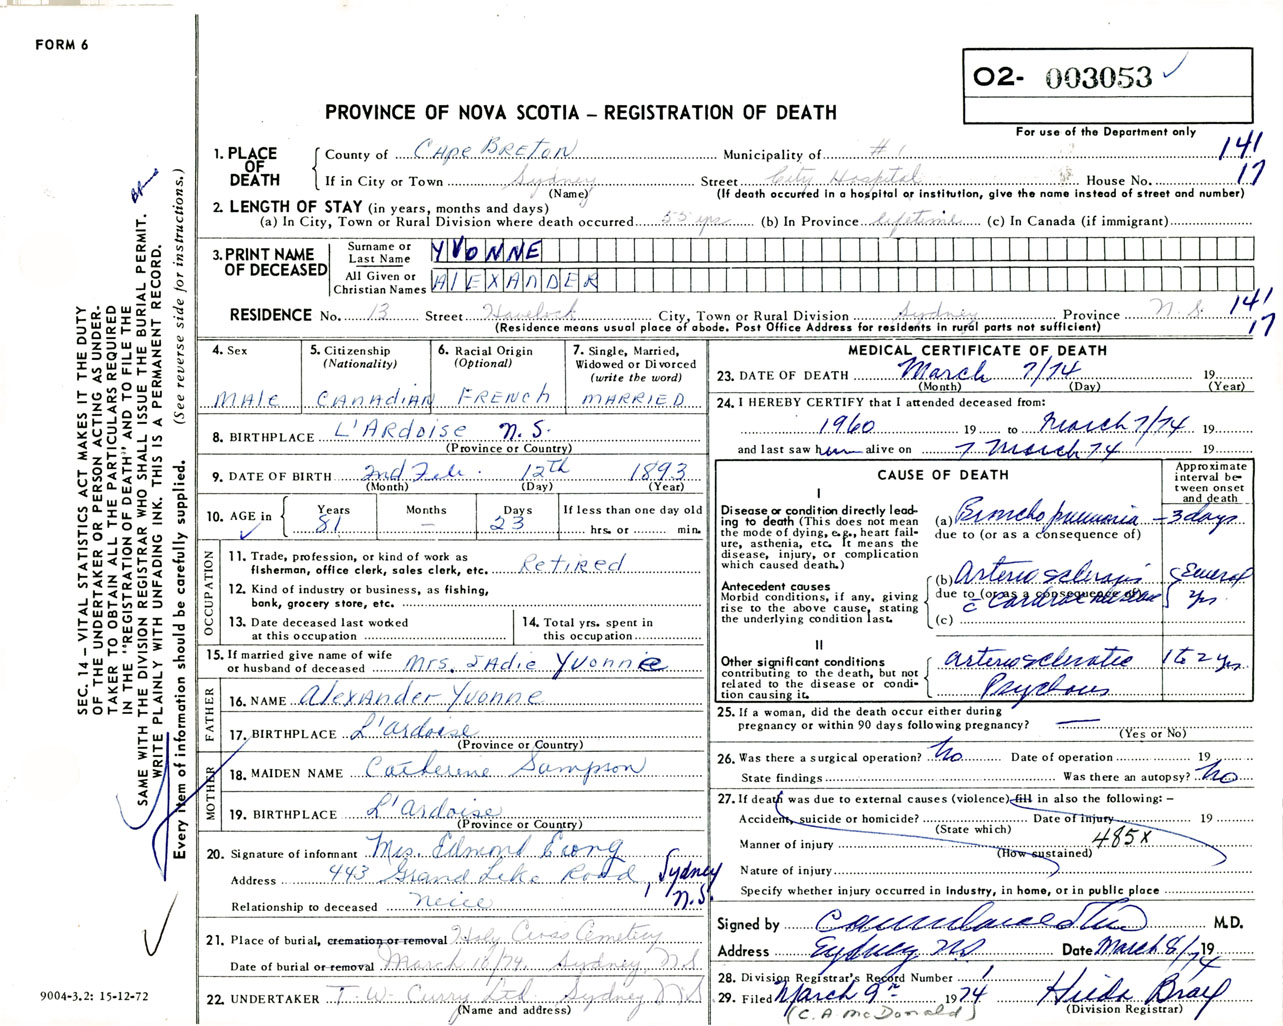 FORM 6
O2- 003053
For use of the Department only
PROVINCE OF NOVA SCOTIA – REGISTRATION OF DEATH
1. PLACE OF DEATH
County of Cape BRETON Municipality of # 1 141
If in City or Town Sydney Street City Hospital House No. 17
(Name) (If death occurred in a hospital or institution, give the name instead of street and number)
2. LENGTH OF STAY (in years, months and days)
(a) In City, Town or Rural Division where death occurred 55 yrs (b) In Province lifetime (c) In Canada (if immigrant)
3. PRINT NAME OF DECEASED
Surname or Last Name YVONNE
All Given or Christian Names AlEXANDER
RESIDENCE No. 13 Street Havelock City, Town or Rural Division Sydney Province N.S. 141
(Residence means usual place of abode. Post Office Address for residents in rural parts not sufficient) 17
4. Sex
MAle
5. Citizenship
(Nationality)
CANADiAN
6. Racial Origin
(Optional)
FRENCH
7. Single, Married,
Widowed or Divorced
(write the word)
MARRIED
8. BIRTHPLACE L'ARdoise N.S.
(Province or Country)
9. DATE OF BIRTH 2nd Feb. 12th 1893
(Month) (Day) (Year)
10. AGE in
Years Months Days If less than one day old
81 – 23 hrs. or min.
OCCUPATION
11. Trade, profession, or kind of work as
fisherman, office clerk, sales clerk, etc. Retired
12. Kind of industry or business, as fishing,
bank, grocery store, etc.
13. Date deceased last worked
at this occupation
14. Total yrs. spent in
this occupation
15. If married give name of wife
or husband of deceased Mrs. SAdie Yvonnie
FATHER
16. NAME Alexander Yvonne
17. BIRTHPLACE L'Ardoise
(Province or Country)
MOTHER
18. MAIDEN NAME Catherine Sampson
19. BIRTHPLACE L'Ardoise
(Province or Country)
20. Signature of informant Mrs. Edmond
Address 443 Grand Lake Road, Sydney
Relationship to deceased Neice N.S.
21. Place of burial, cremation or removal Holy Cross Cemetery
Date of burial or removal March 10/74. Sydney, NS
22. UNDERTAKER T. W. Curry Ltd Sydney NS
(Name and address)
MEDICAL CERTIFICATE OF DEATH
23. DATE OF DEATH March 7/74 19
(Month) (Day) (Year)
24. I HEREBY CERTIFY that I attended deceased from:
1960 19 to March 7/74 19
and last saw him alive on 7 March 74 19
CAUSE OF DEATH
Approximate interval between onset and death
I
Disease or condition directly leading to death (This does not mean the mode of dying, e.g., heart failure, asthenia, etc. It means the disease, injury, or complication which caused death.)
(a) Bronchopneumonia – 3 days
due to (or as a consequence of)
Antecedent causes
Morbid conditions, if any, giving rise to the above cause, stating the underlying condition last.
(b) Arteriosclerosis Several
due to (or as a consequence of) c Cardiac disease yrs
(c)
II
Other significant conditions contributing to the death, but not related to the disease or condition causing it.
Arteriosclerotic 1 to 2 yrs.
Psychosis
25. If a woman, did the death occur either during
pregnancy or within 90 days following pregnancy? —
(Yes or No)
26. Was there a surgical operation? No Date of operation 19
State findings Was there an autopsy? No
27. If death was due to external causes (violence) fill in also the following: –
Accident, suicide or homicide? Date of injury 19
(State which)
Manner of injury 485X
(How sustained)
Nature of injury
Specify whether injury occurred in industry, in home, or in public place
Signed by M.D.
Address Sydney NS Date March 8/74 19
28. Division Registrar's Record Number 1
29. Filed March 9th 1974 Hilda Bray
(C. A. McDonald) (Division Registrar)
SEC. 14 – VITAL STATISTICS ACT MAKES IT THE DUTY
OF THE UNDERTAKER OR PERSON ACTING AS UNDER-
TAKER TO OBTAIN ALL THE PARTICULARS REQUIRED
IN THE "REGISTRATION OF DEATH" AND TO FILE THE
SAME WITH THE DIVISION REGISTRAR WHO SHALL ISSUE THE BURIAL PERMIT.
WRITE PLAINLY WITH UNFADING INK. THIS IS A PERMANENT RECORD.
Every item of information should be carefully supplied. (See reverse side for instructions.)
9004-3.2: 15-12-72